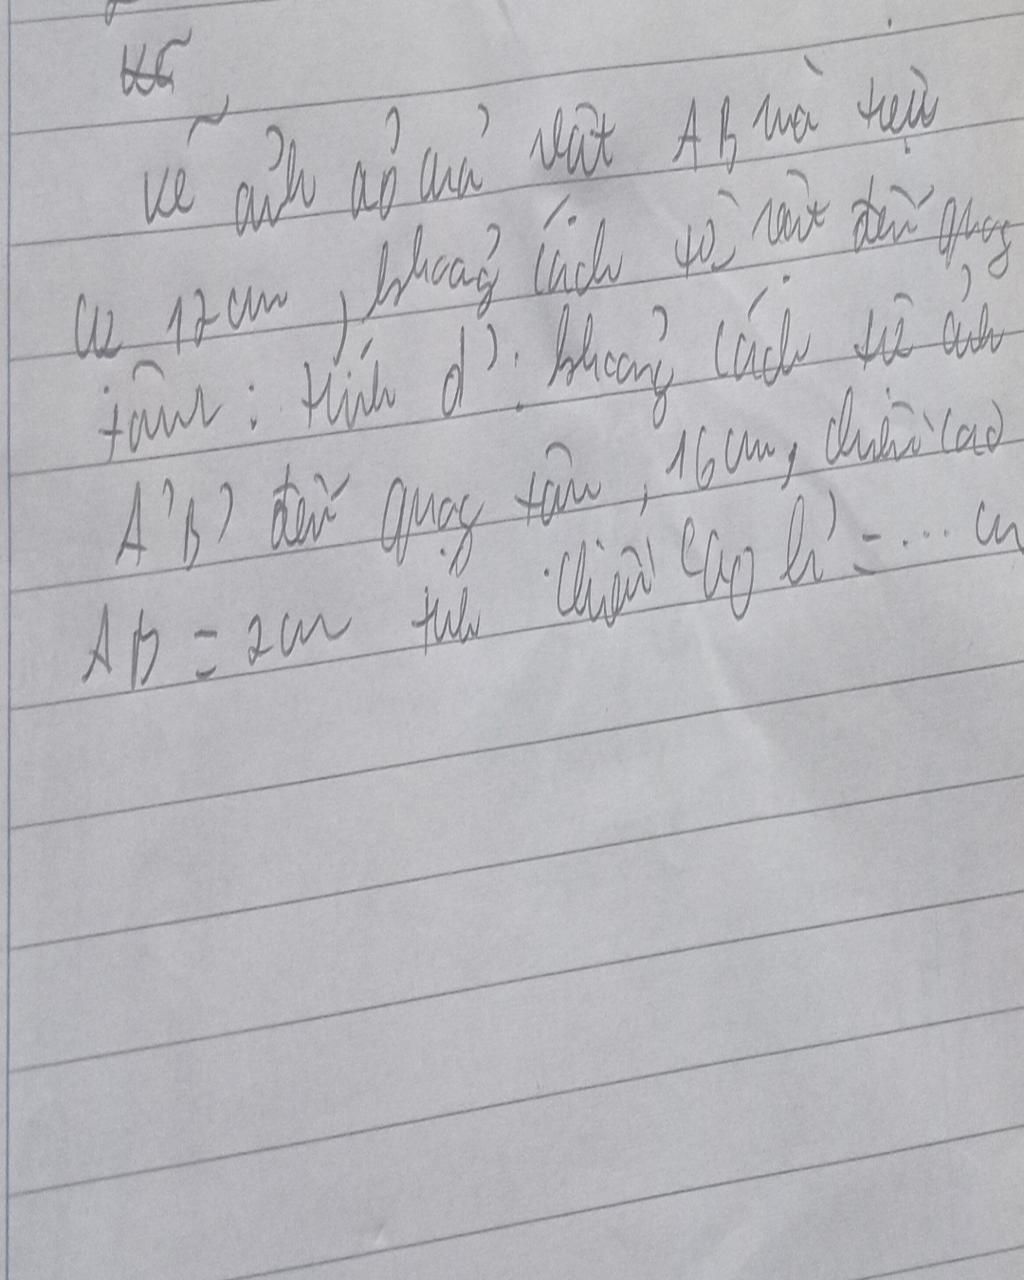 Vẽ ảnh ảo của vật AB mà tiêu
cự 12 cm, khoảng cách từ vật đến quang
tâm: tính d': khoảng cách từ ảnh
A'B' đến quang tâm, 16 cm, chiều cao
AB = 2cm tính chiều cao h' = ... cm